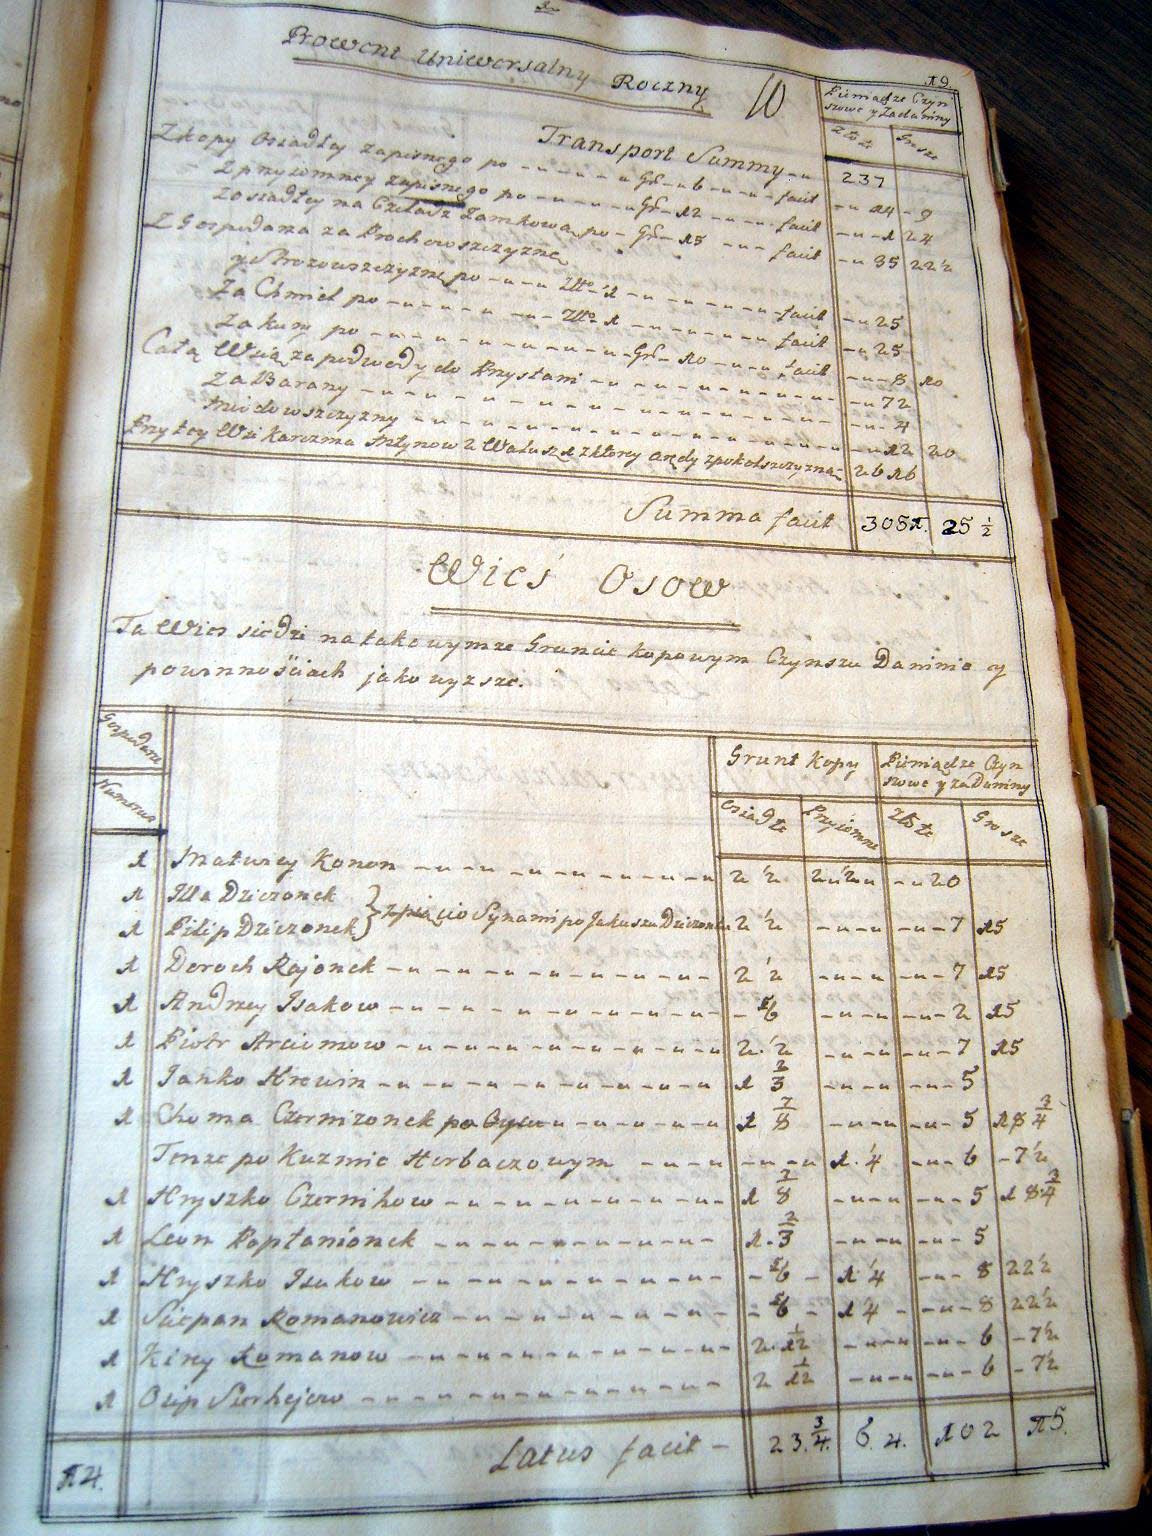 19.
Prowent Uniwersalny Roczny 10
Pieniądze Czyn-
szowe y Za daniny
Złote Grosze
Transport Summy 237
Z kopy osiadłey zapisnego po Gr 6 facit 14 9
Z przyiomney zapisnego po Gr 12 facit 1 24
Z osiadłey na Czeladz Zamkową po Gr 15 facit 35 22 ½
Z Gospodarza za Prochowszczyznę
y Strozowszczyznę po Złto 1 facit 25
Za Chmiel po Złto 1 facit 25
Za kury po Gr 10 facit 8 10
Całą Wsią za podwody do Przystani 72
Za Barany 4
Miodowszczyzny 12 20
Przytey Wsi Karczma z ktorey arędy 26 16
Summa facit 3081. 25 ½
Wieś Osow
Ta Wies siedzi na takowymze Gruncie kopowym Czynszu Daninie y
powinnościach jako wyzsze.
Gospodarze
Numerus
Grunt Kopy
Pieniądze Czyn-
szowe y za Daniny
Osiadłe Przyiomne Złote Grosze
1 Matwiey Konon 2 ½ 2 ½ 20
1 Illa Dziczonek
1 Pilip Dziczonek z pięcio Synami po Jakuszu Dziczonku 2 ½ 7 15
1 Doroch Rajonek 2 ½ 7 15
1 Andrzey Isakow 5/6 2 15
1 Piotr Arciomow 2 ½ 7 15
1 Janko Hrewin 1 2/3 5
1 Choma Czernizonek po Oycu 1 7/8 5 18 3/4
Tenze po Kuzmie Horbaczowym 1 ¼ 6 7 ½
1 Hryszko Czernihow 1 7/8 5 18 3/4
1 Leon Popłanionek 1 2/3 5
1 Hryszko Isakow 5/6 1 ¼ 8 22 ½
1 Sciepan Romanowicz 5/6 1 ¼ 8 22 ½
1 Kirey Romanow 2 1/12 6 7 ½
1 Osip Sierhejew 2 1/12 6 7 ½
14. Latus facit 23. 3/4. 6. 4. 102 15.